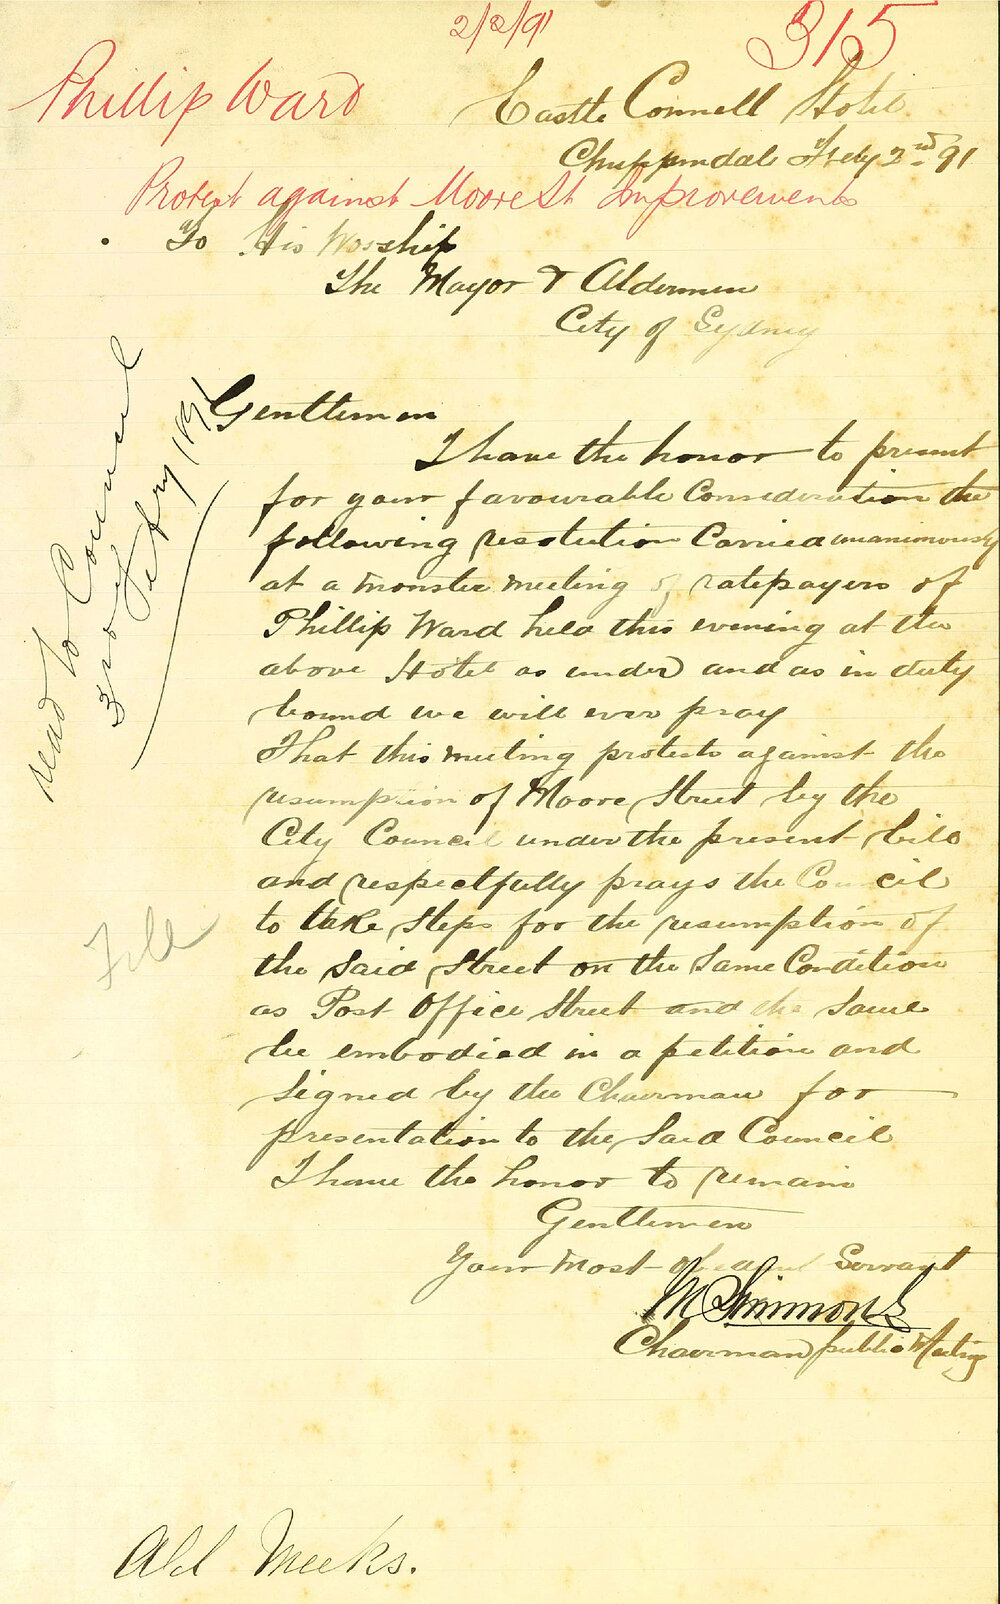 2/2/91
315
Phillip Ward
Castle Connell Hotel
Chippendale Feby 2nd 91
Protest against Moore St Improvements
To His Worship
The Mayor & Aldermen
City of Sydney
read to Council
3rd Febry 1891
Gentlemen
I have the honor to present
for your favourable Consideration the
following resolution Carried unanimously
at a monster meeting of ratepayers of
Phillip Ward held this evening at the
above Hotel as under and as in duty
bound we will ever pray
That this meeting protests against the
resumption of Moore Street by the
City Council under the present bill
and respectfully prays the Council
to take steps for the resumption of
File
the said Street on the same Condition
as Post Office Street and the same
be embodied in a petition and
signed by the Chairman for
presentation to the said Council
I have the honor to remain
Gentlemen
Your most obedient Servant
M Simmons
Chairman public Meeting
Ald Meeks.